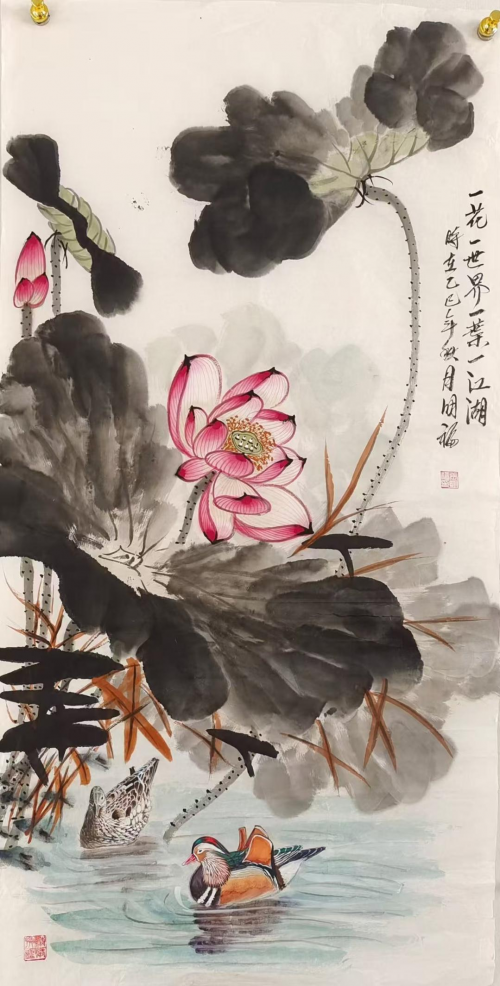 一花一世界一葉一江湖
時在乙巳年秋月国福